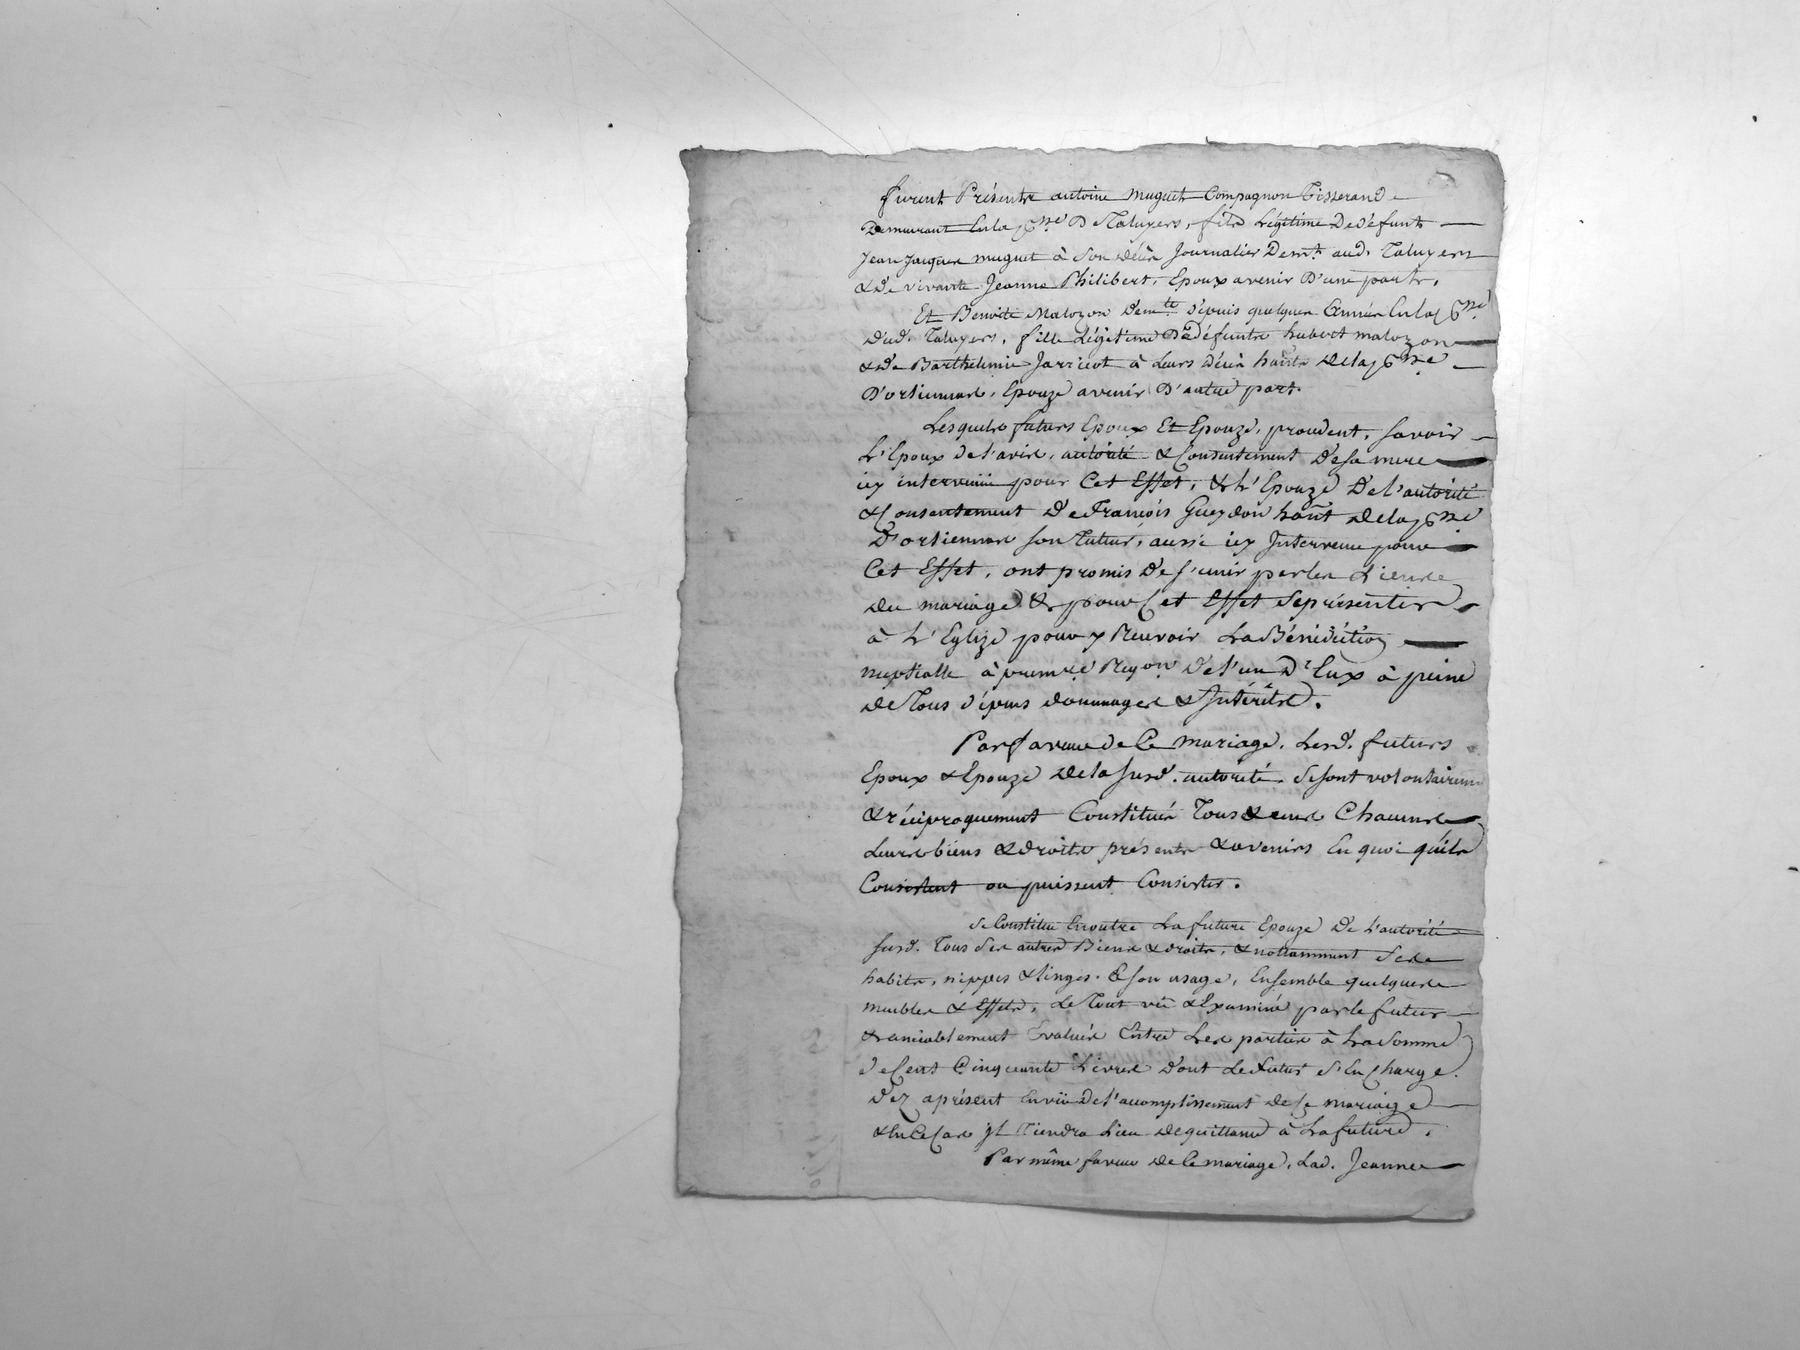 furent Présents antoine muguet Compagnon Tisserand
Demeurant En la psse D Taluyers, fils Légitime De défunt
Jean Jacques muguet à Son décès Journalier Demt. aud. Taluyers
& de vivante Jeanne Philibert, Epoux avenir D'une part.
Et Benoite Malozon demte depuis quelques Années En la psse
dud. Taluyers, fille Légitime De défunts hubert malozon
& de Barthelemie Jarricot à Leurs décès hants de la psse
D'orliennas, Epouze avenir D'autre part.
Lesquels futurs Epoux Et Epouze, procedent, savoir
L'Epoux de l'avis, autorité & Consentement de sa mere
icy intervenüe pour Cet Effet, & L'Epouze De l'autorité
& Consentement De François Gueydon hant de la psse
D'orliennas son Tuteur, aussi icy Intervenu pour
Cet Effet, ont promis de s'unir par les Liens
du mariage & pour Cet Effet se présenter
à L'Eglize pour y Recevoir La Bénédiction
nuptialle à premre Reqon de l'un D'Eux à peine
de Tous dépens dommages & Intérêts.
Par faveur de Ce mariage, Lesd. futurs
Epoux & Epouze de la susd. autorité se sont volontairemt
& réciproquement Constitués Tous & uns Chacuns
Leurs biens & droits présents & avenirs En quoi qu'ils
Consistent ou puissent Consister.
Se Constitue En outre La future Epouze De L'autorité
susd. Tous Ses autres Biens & droits, & notamment Ses
habits, nippes & linges à son usage, Ensemble quelques
meubles & Effets, Le Tout vû & Examiné par le futur
& amiablement Evalués Entre Les parties à La Somme
de Cent Cinquante Livres dont Le futur s'En Charge
dez aprésent En vüe de l'accomplissement de Ce mariage
& En Ce Cas il Tiendra Lieu de quittance à La future.
Par même faveur de Ce mariage, Lad. Jeanne